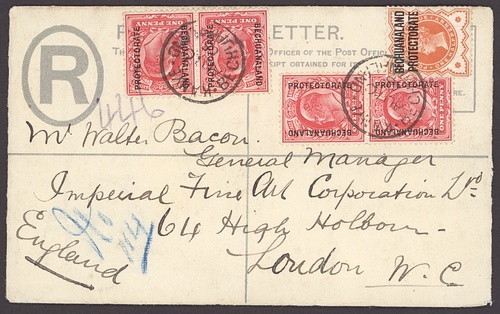 R
LETTER.
OFFICER OF THE POST OFFI
IPT OBTAINED FOR I
ONE PENNY
ONE PENNY
BECHUANALAND
PROTECTORATE
BECHUANALAND
PROTECTORATE
BECHUANALAND
PROTECTORATE
BECHUANALAND
PROTECTORATE
BECHUANALAND
PROTECTORATE
446
Mr Walter Bacon.
General Manager
Imperial Fine Art Corporation Ld
64 High Holborn
London W.C
England